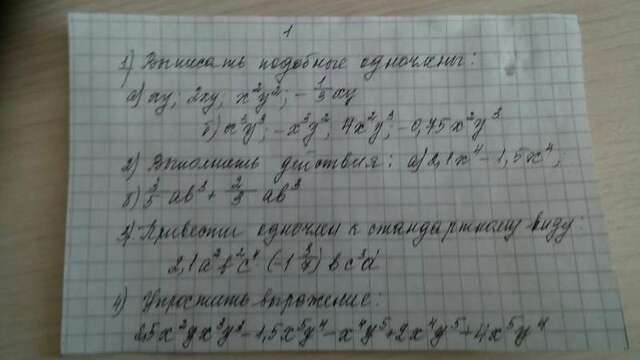 1
1) Выписать подобные одночлены:
а) xy; 2xy; x²y²; -1/3 xy
б) x³y³; -x³y²; 4x²y³; -0,75x²y³
2) Выполнить действия: а) 2,1x⁴ - 1,5x⁴;
б) 3/5 ab³ + 2/3 ab³
3) Привести одночлен к стандартному виду:
2,1a²b²c⁴ (-1 3/7) bc³d
4) Упростить выражение:
2,5x²yx³y³ - 1,5x⁵y⁴ - x⁴y⁵ + 2x⁴y⁵ + 4x⁵y⁴